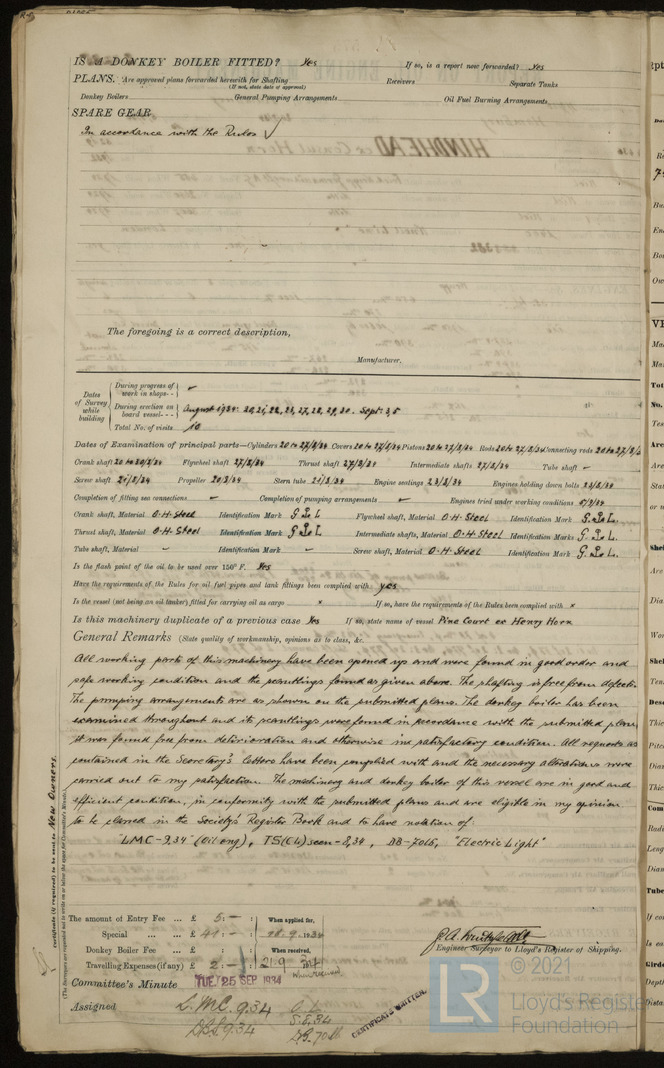 IS A DONKEY BOILER FITTED? Yes If so, is a report now forwarded? Yes
PLANS. Are approved plans forwarded herewith for Shafting Receivers Separate Tanks
(If not, state date of approval)
Donkey Boilers General Pumping Arrangements Oil Fuel Burning Arrangements
SPARE GEAR
In accordance with the Rules ✓
The foregoing is a correct description,
Manufacturer.
Dates of Survey while building
During progress of work in shops - -
During erection on board vessel - - - August 1934: 20, 21, 22, 23, 27, 28, 29, 30. Sept: 3, 5
Total No. of visits 10
Dates of Examination of principal parts—Cylinders 20 to 27/8/34 Covers 20 to 27/8/34 Pistons 20 to 27/8/34 Rods 20 to 27/8/34 Connecting rods 20 to 27/8/3
Crank shaft 20 to 30/8/34 Flywheel shaft 27/8/34 Thrust shaft 27/8/34 Intermediate shafts 27/8/34 Tube shaft –
Screw shaft 21/8/34 Propeller 20/8/34 Stern tube 21/8/34 Engine seatings 23/8/34 Engines holding down bolts 23/8/34
Completion of fitting sea connections Completion of pumping arrangements Engines tried under working conditions 5/9/34
Crank shaft, Material O-H-Steel Identification Mark G.L. Flywheel shaft, Material O-H-Steel Identification Mark G.L.
Thrust shaft, Material O-H-Steel Identification Mark G.L. Intermediate shafts, Material O-H-Steel Identification Marks G.L.
Tube shaft, Material – Identification Mark – Screw shaft, Material O-H-Steel Identification Mark G.L.
Is the flash point of the oil to be used over 150° F. Yes
Have the requirements of the Rules for oil fuel pipes and tank fittings been complied with: yes
Is the vessel (not being an oil tanker) fitted for carrying oil as cargo × If so, have the requirements of the Rules been complied with ×
Is this machinery duplicate of a previous case Yes If so, state name of vessel Pine Court ex Henry Horn
General Remarks (State quality of workmanship, opinions as to class, &c.
All working parts of this machinery have been opened up and were found in good order and
safe working condition and the scantlings found as given above. The shafting is free from defects.
The pumping arrangements are as shown on the submitted plans. The donkey boiler has been
examined throughout and its scantlings were found in accordance with the submitted plans
it was found free from deterioration and otherwise in satisfactory condition. All requests as
contained in the Secretary's letters have been complied with and the necessary alterations were
carried out to my satisfaction. The machinery and donkey boiler of this vessel are in good and
efficient condition, in conformity with the submitted plans and are eligible in my opinion
to be classed in the Society's Register Book and to have notation of
"LMC-9,34" (Oil eng), TS(CL) seen-8,34, DB-70lb, "Electric Light"
Certificate (if required) to be sent to New Owners.
(The Surveyors are requested not to write on or below the space for Committee's Minute.)
The amount of Entry Fee ... £ 5: – : When applied for,
Special ... £ 41: – : 18.9.1934
Donkey Boiler Fee ... £ : : When received,
Travelling Expenses (if any) £ 2: – : 21.9 1934
Engineer Surveyor to Lloyd's Register of Shipping.
Committee's Minute TUE. 25 SEP 1934
Assigned L.M.C. 9.34 O.L.
D.B.S. 9.34 S. 8.34
D.B. 70 lb
CERTIFICATE WRITTEN.
LR
© 2021
Lloyd's Register
Foundation